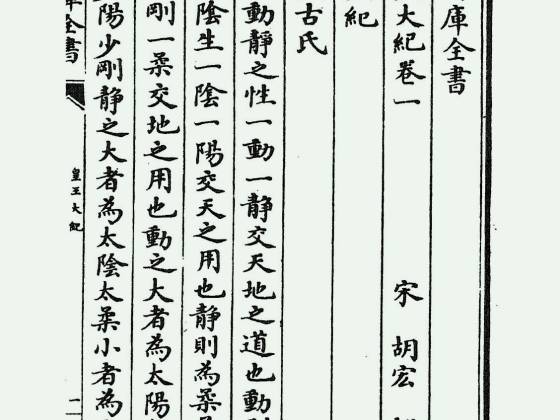 庫全書
大紀卷一
宋 胡宏
紀
古氏
動靜之性一動一靜交天地之道也動
陰生一陰一陽交天之用也靜則為柔
剛一柔交地之用也動之大者為太陽
陽少剛靜之大者為太陰太柔小者為
全書
皇王大紀
一